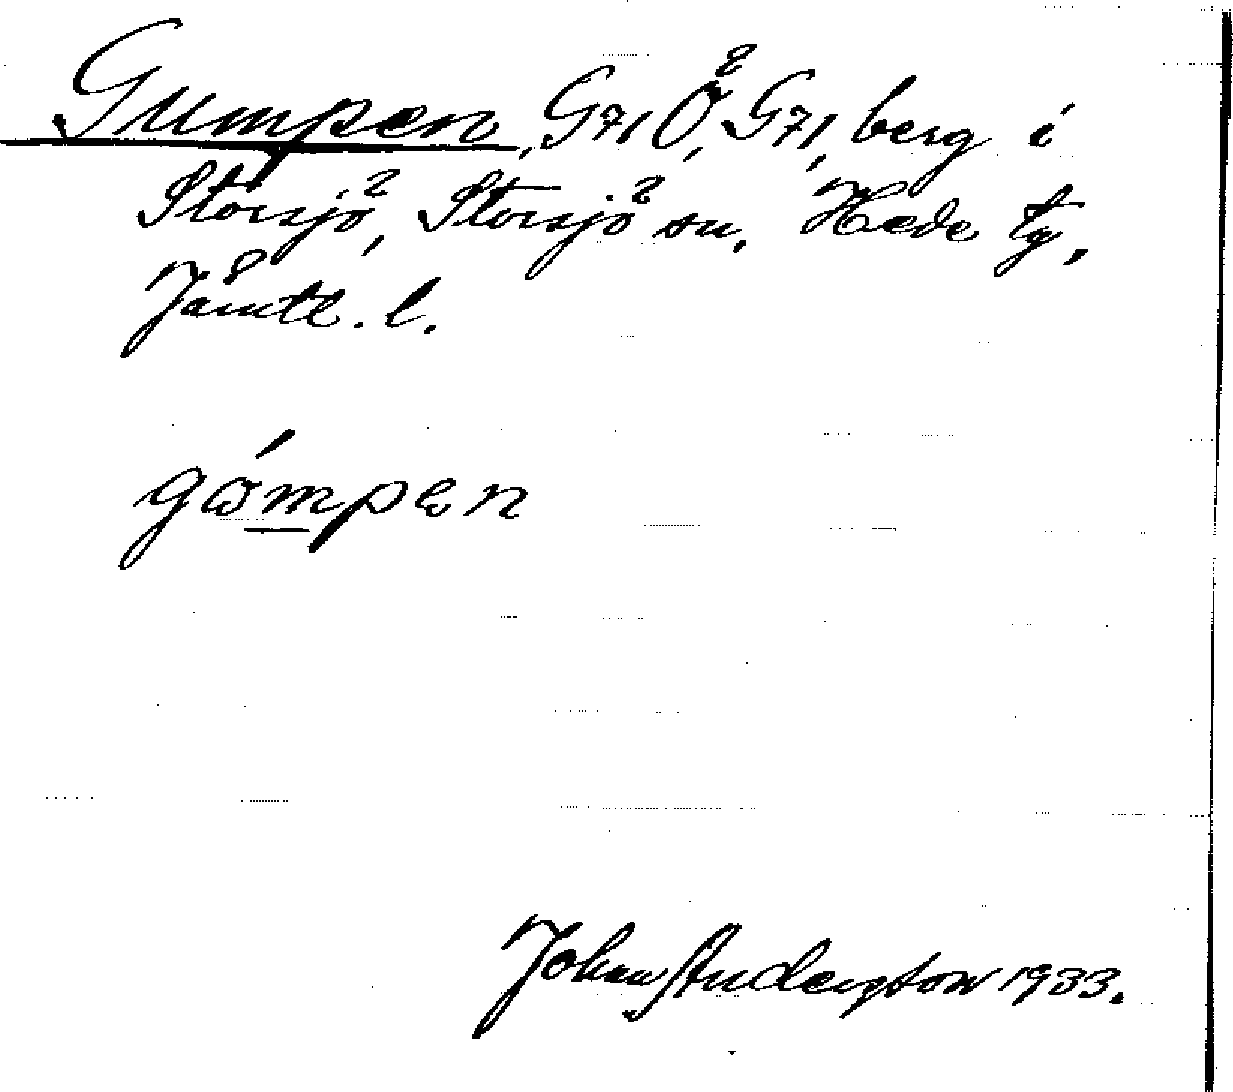 Gumpen, G71 Ö, G71, berg i
Storsjö, Storsjö sn, Hede tg,
Jämtl. l.
gómpen
Johan Anderson 1933.